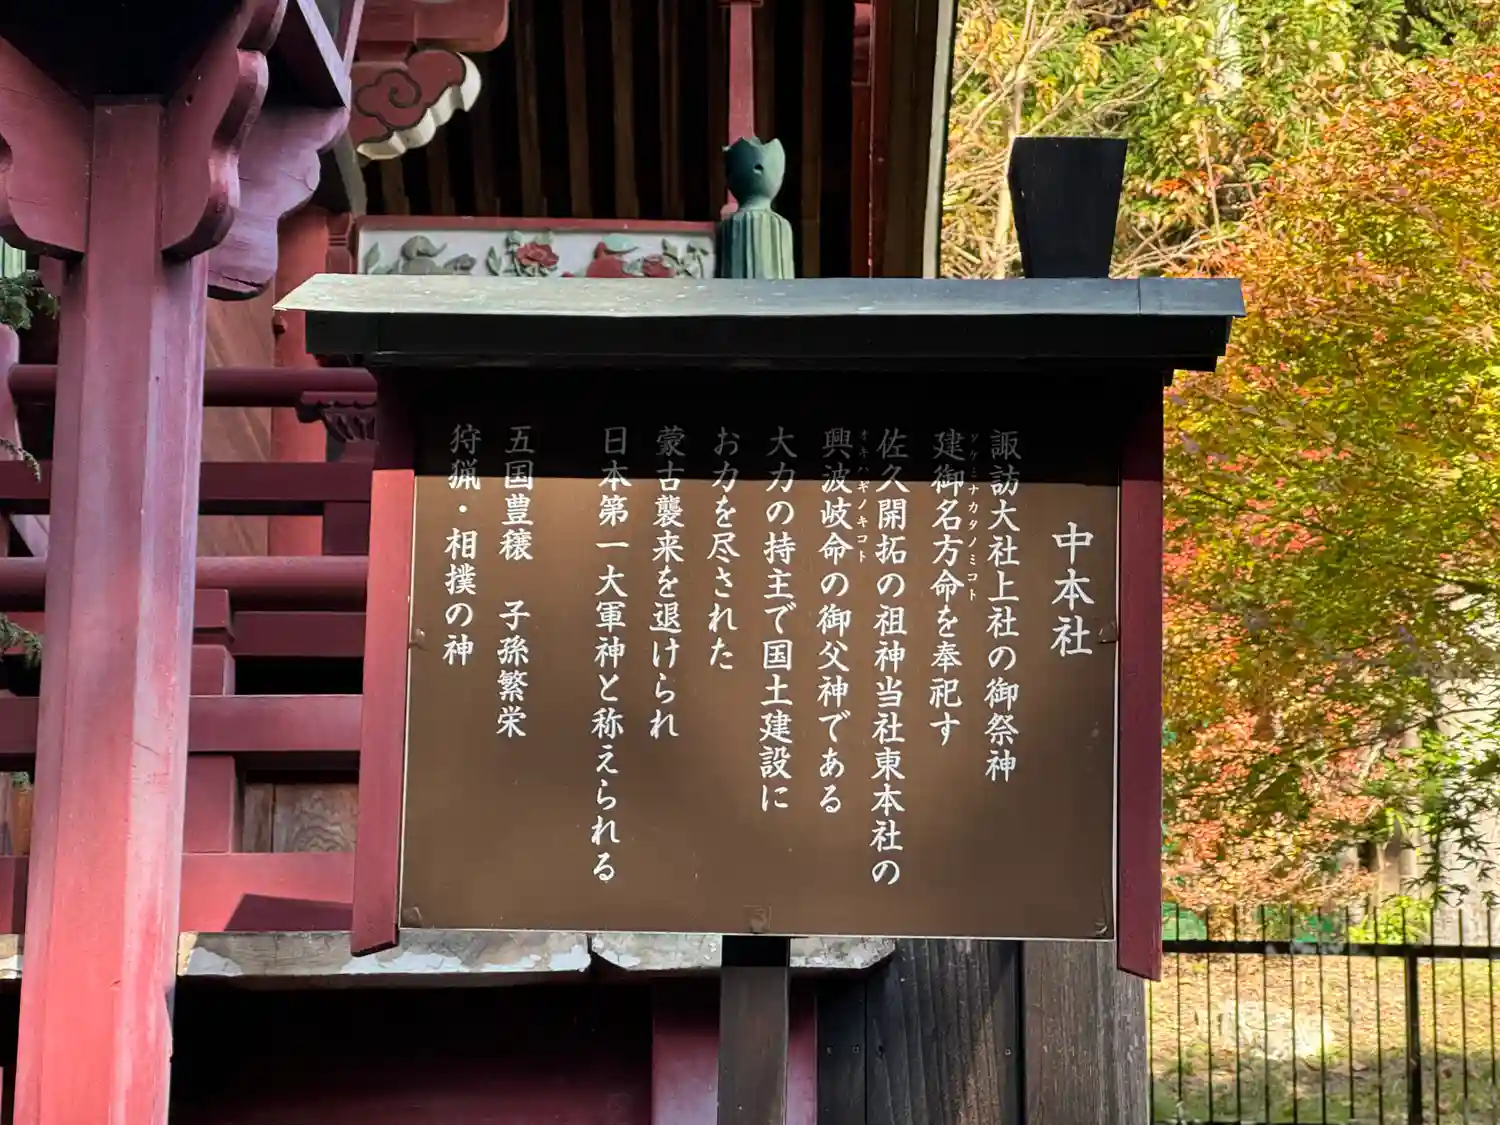 中本社
諏訪大社上社の御祭神
建御名方命を奉祀す
タケミナカタノミコト
佐久開拓の祖神当社東本社の
興波岐命の御父神である
オキハギノキコト
大力の持主で国土建設に
お力を尽された
蒙古襲来を退けられ
日本第一大軍神と称えられる
五国豊穣　子孫繁栄
狩猟・相撲の神